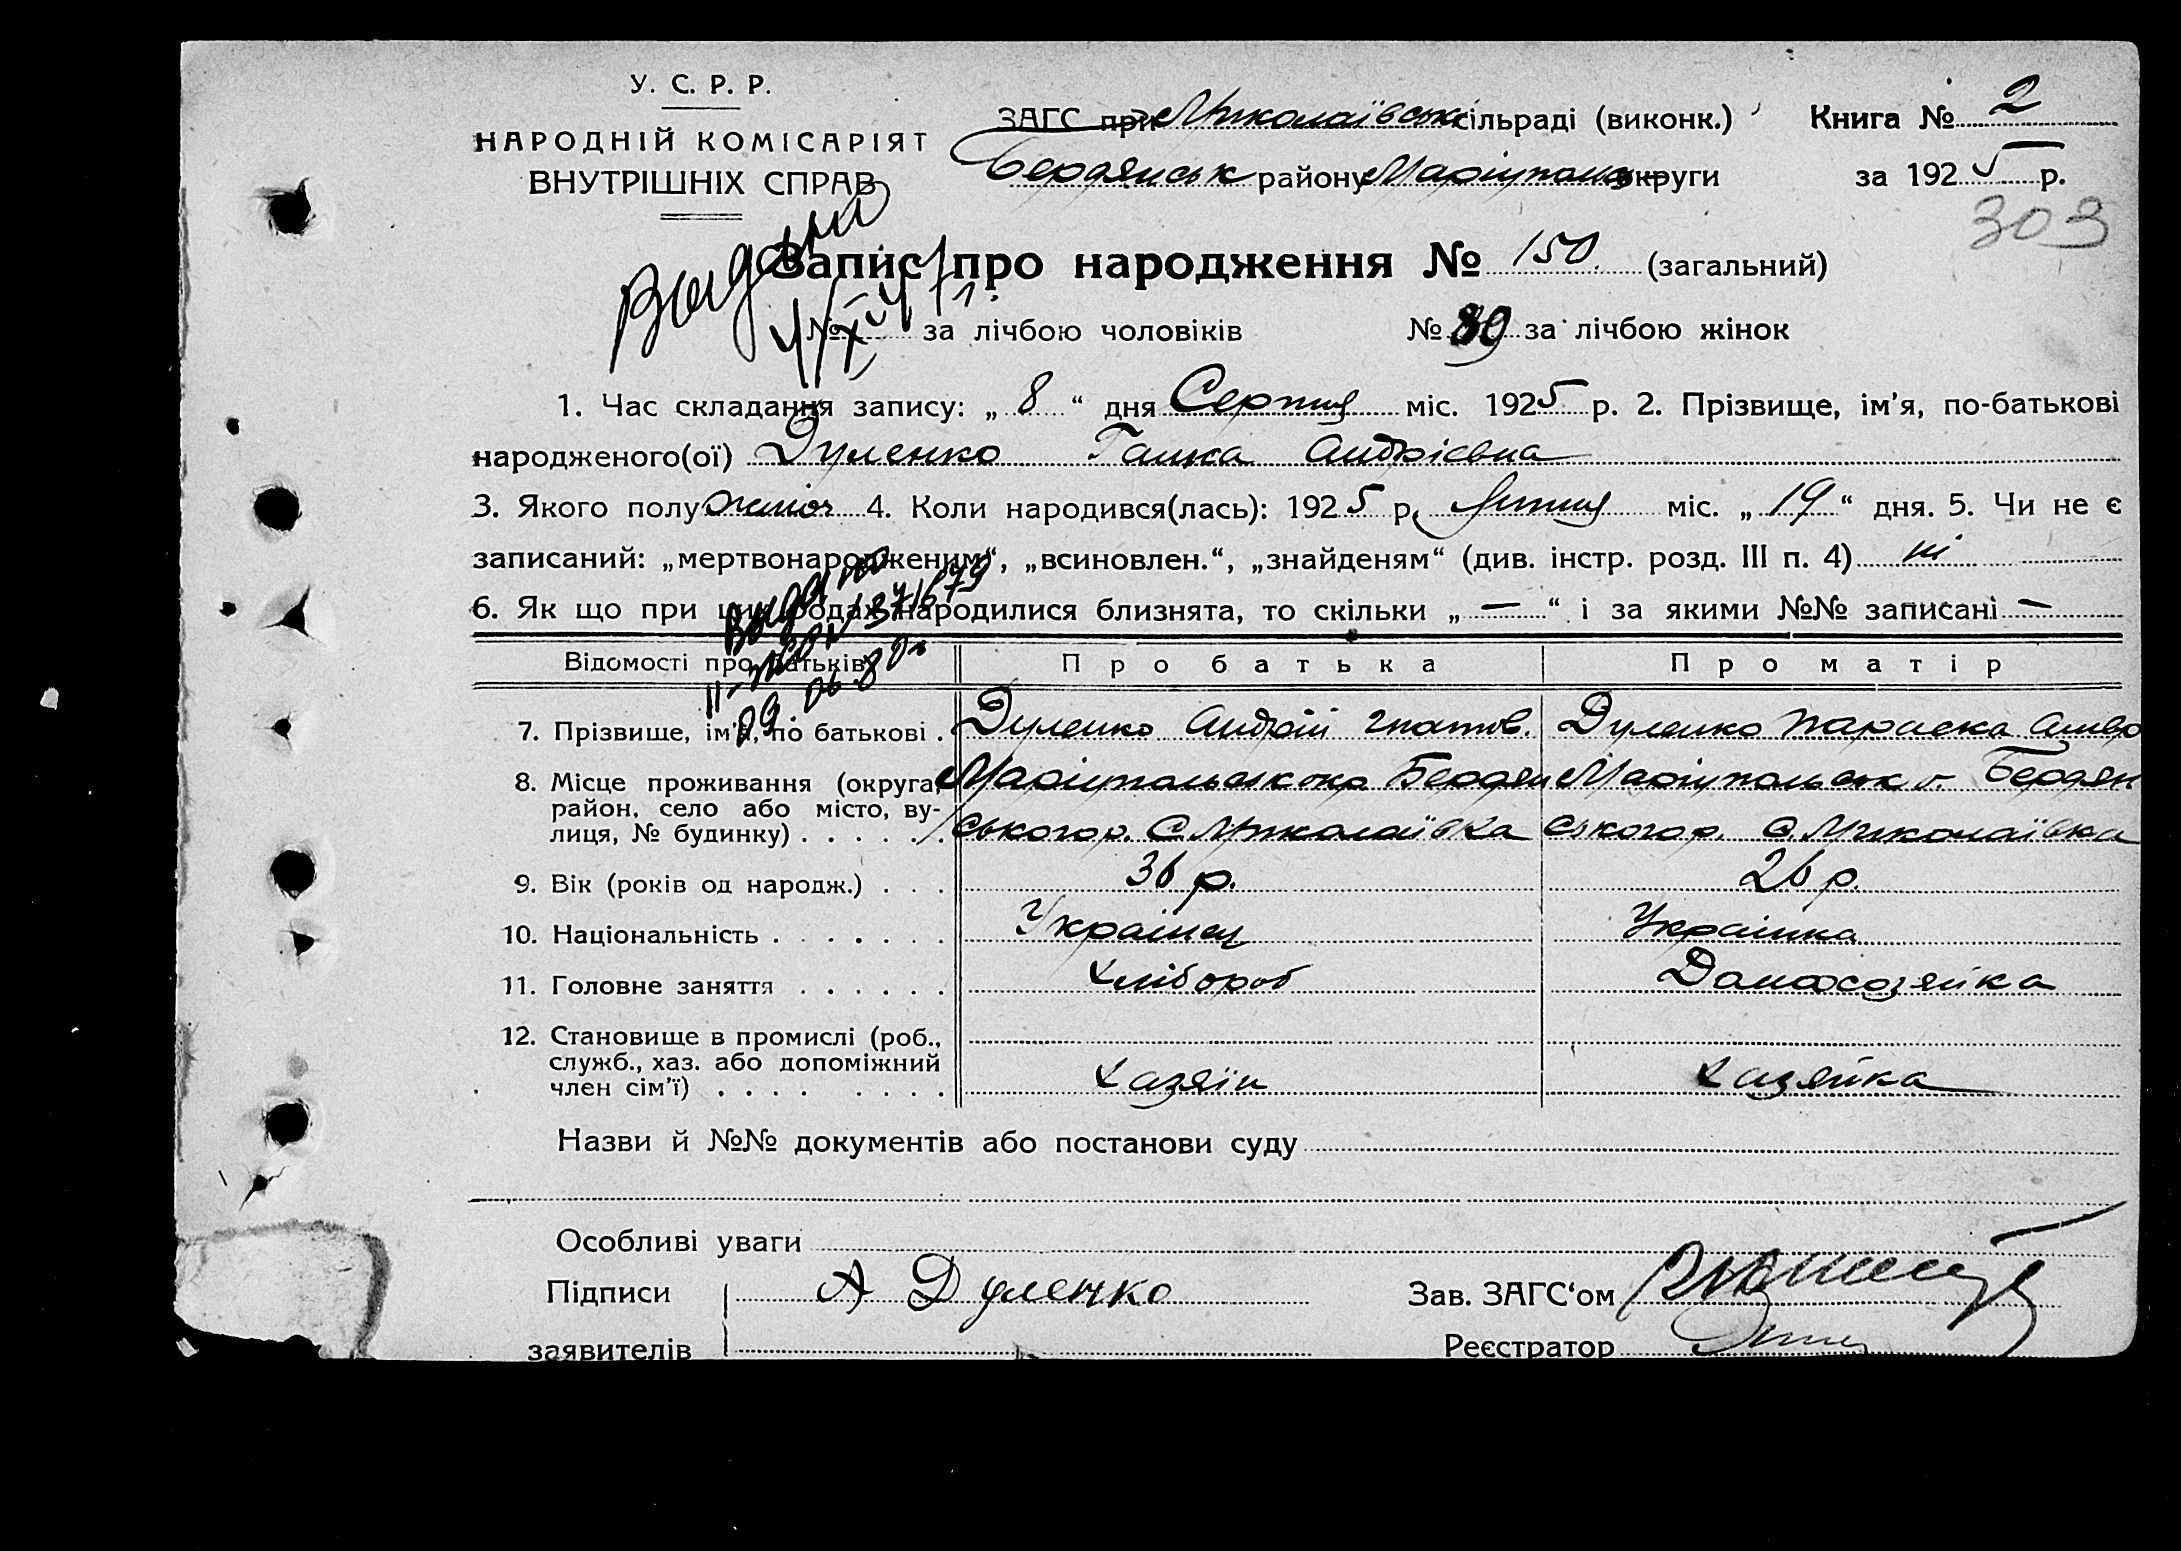 У. С. Р. Р.
НАРОДНІЙ КОМІСАРІЯТ
ВНУТРІШНІХ СПРАВ
ЗАГС при Миколаївськ сільраді (виконк.)
Книга № 2
Бердянськ району Маріупольс округи
за 1925 р.
303
Запис про народження № 150 (загальний)
№ за лічбою чоловіків
№ 80 за лічбою жінок
1. Час складання запису: „ 8 “ дня Серпня міс. 1925 р. 2. Прізвище, ім'я, по-батькові
народженого(ої) Дуленко Ганна Андрієвна
3. Якого полу жіноч 4. Коли народився(лась): 1925 р. Липня міс. „ 19 “ дня. 5. Чи не є
записаний: „мертвонародженим“, „всиновлен.“, „знайденям“ (див. інстр. розд. III п. 4) ні
6. Як що при цих родах народилися близнята, то скільки „ — “ і за якими №№ записані —
Відомості про батьків
Про батька
Про матір
7. Прізвище, ім'я, по батькові . Дуленко Андрій Дуленко Параска
8. Місце проживання (округа, Маріупольськ окр. Бердян Маріупольськ о. Бердян
район, село або місто, ву-
лиця, № будинку) . . . . . . ського р. С Миколаївка ського р. С. Миколаївка
9. Вік (років од народж.) . . . 36 р. 26 р.
10. Національність . . . . . . . Українец Українка
11. Головне заняття . . . . . . Хлібороб Домохозяйка
12. Становище в промислі (роб.,
служб., хаз. або допоміжний
член сім'ї) . . . . . . . . Хазяїн Хазяйка
Назви й №№ документів або постанови суду
Особливі уваги
Підписи А Дуленко
Зав. ЗАГС'ом
заявителів
Реєстратор